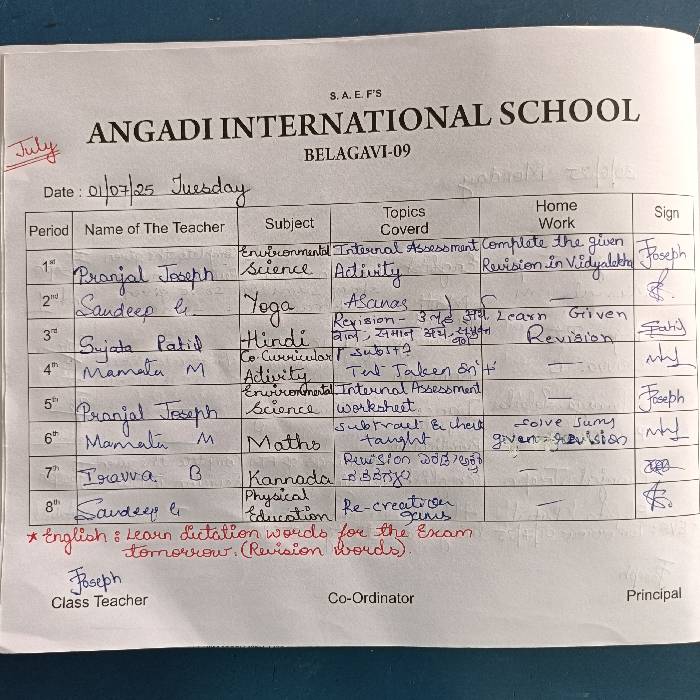 S. A. E. F'S
ANGADI INTERNATIONAL SCHOOL
July
BELAGAVI-09
Date : 01/07/25 Tuesday
Period Name of The Teacher Subject Topics Coverd Home Work Sign
1st Pranjal Joseph Environmental Science Internal Assessment Activity Complete the given Revision in Vidyalekha Joseph
2nd Sandeep G Yoga Asanas —
3rd Sujata Patil Hindi Revision - समान अर्थ Learn Given Revision Patil
4th Mamata M Co-Curricular Activity Taken on + —
5th Pranjal Joseph Environmental Science Internal Assessment worksheet — Joseph
6th Mamata M Maths subtract & check taught solve sums given - revision
7th Iravva B Kannada Revision —
8th Sandeep G Physical Education Re-creation games —
* English : Learn dictation words for the Exam
tomorrow. (Revision words).
Joseph
Class Teacher Co-Ordinator Principal